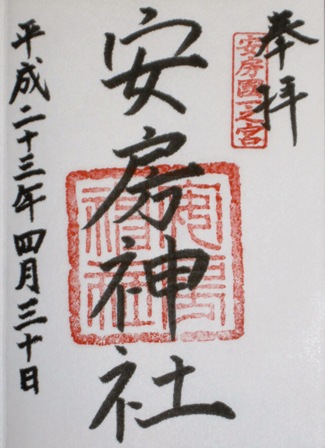 奉拝
安房國一之宮
安房神社
平成二十三年四月三十日